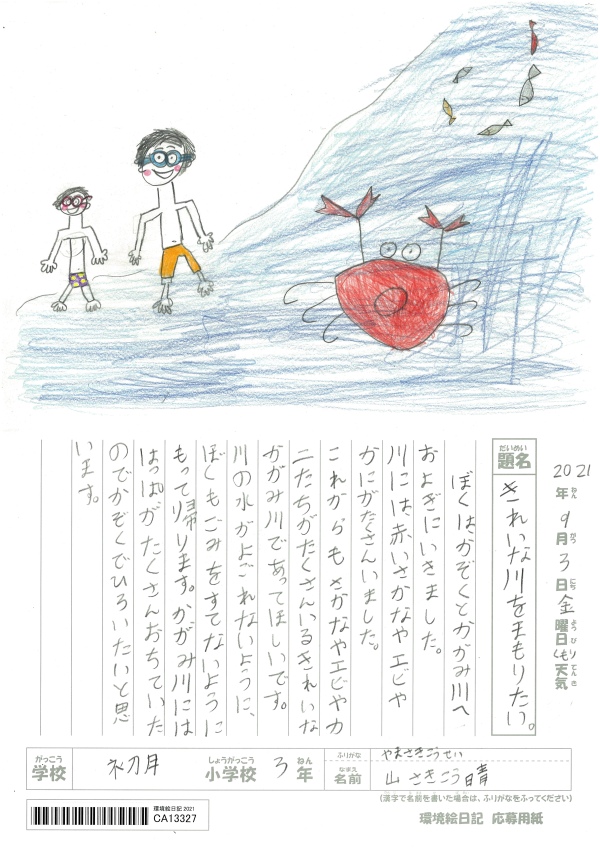 2021年ねん9月がつ3日にち金曜日ようび くもり天気てんき
だいめい
題名 きれいな川をまもりたい。
ぼくはかぞくとかがみ川へ
およぎにいきました。
川には赤いさかなやエビや
かにがたくさんいました。
これからもさかなやエビやカ
ニたちがたくさんいるきれいな
かがみ川であってほしいです。
川の水がよごれないように、
ぼくもごみをすてないように
もって帰ります。かがみ川には
はっぱがたくさんおちていた
のでかぞくでひろいたいと思
います。
がっこう しょうがっこう ねん
学校 初月 小学校 3年
ふりがな やまさきこうせい
なまえ
名前 山さきこう晴
(漢字で名前を書いた場合は、ふりがなをふってください)
環境絵日記 応募用紙
環境絵日記2021
CA13327